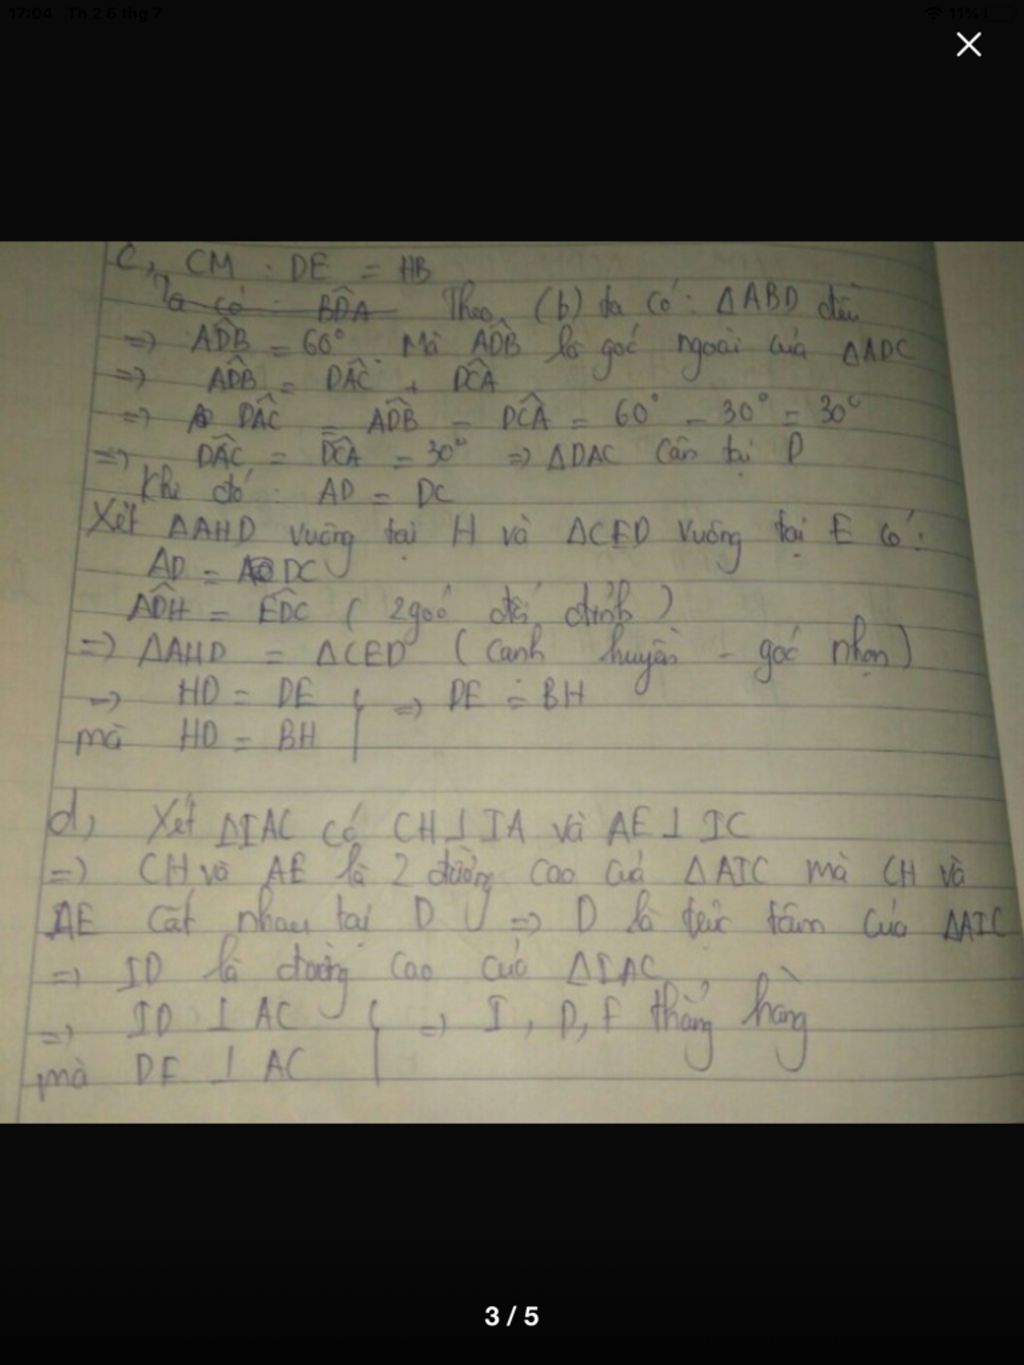 17:04 Th 2 6 thg 7
11%
c, CM : DE = HB
Ta có : BDA Theo (b) ta có : ΔABD đều
=> ADB = 60° Mà ADB là góc ngoài của ΔADC
=> ADB = DAC + DCA
=> DAC = ADB - DCA = 60° - 30° = 30°
=> DAC = DCA = 30° => ΔDAC cân tại D
Khi đó : AD = DC
Xét ΔAHD vuông tại H và ΔCED vuông tại E có :
AD = DC
ADH = EDC ( 2 góc đối đỉnh )
=> ΔAHD = ΔCED ( cạnh huyền - góc nhọn )
=> HD = DE => DE = BH
mà HD = BH
d, Xét ΔIAC có CH ⊥ IA và AE ⊥ IC
=> CH và AE là 2 đường cao của ΔAIC mà CH và
AE cắt nhau tại D => D là trực tâm của ΔAIC
=> ID là đường cao của ΔIAC
=> ID ⊥ AC => I, D, F thẳng hàng
mà DF ⊥ AC
3 / 5